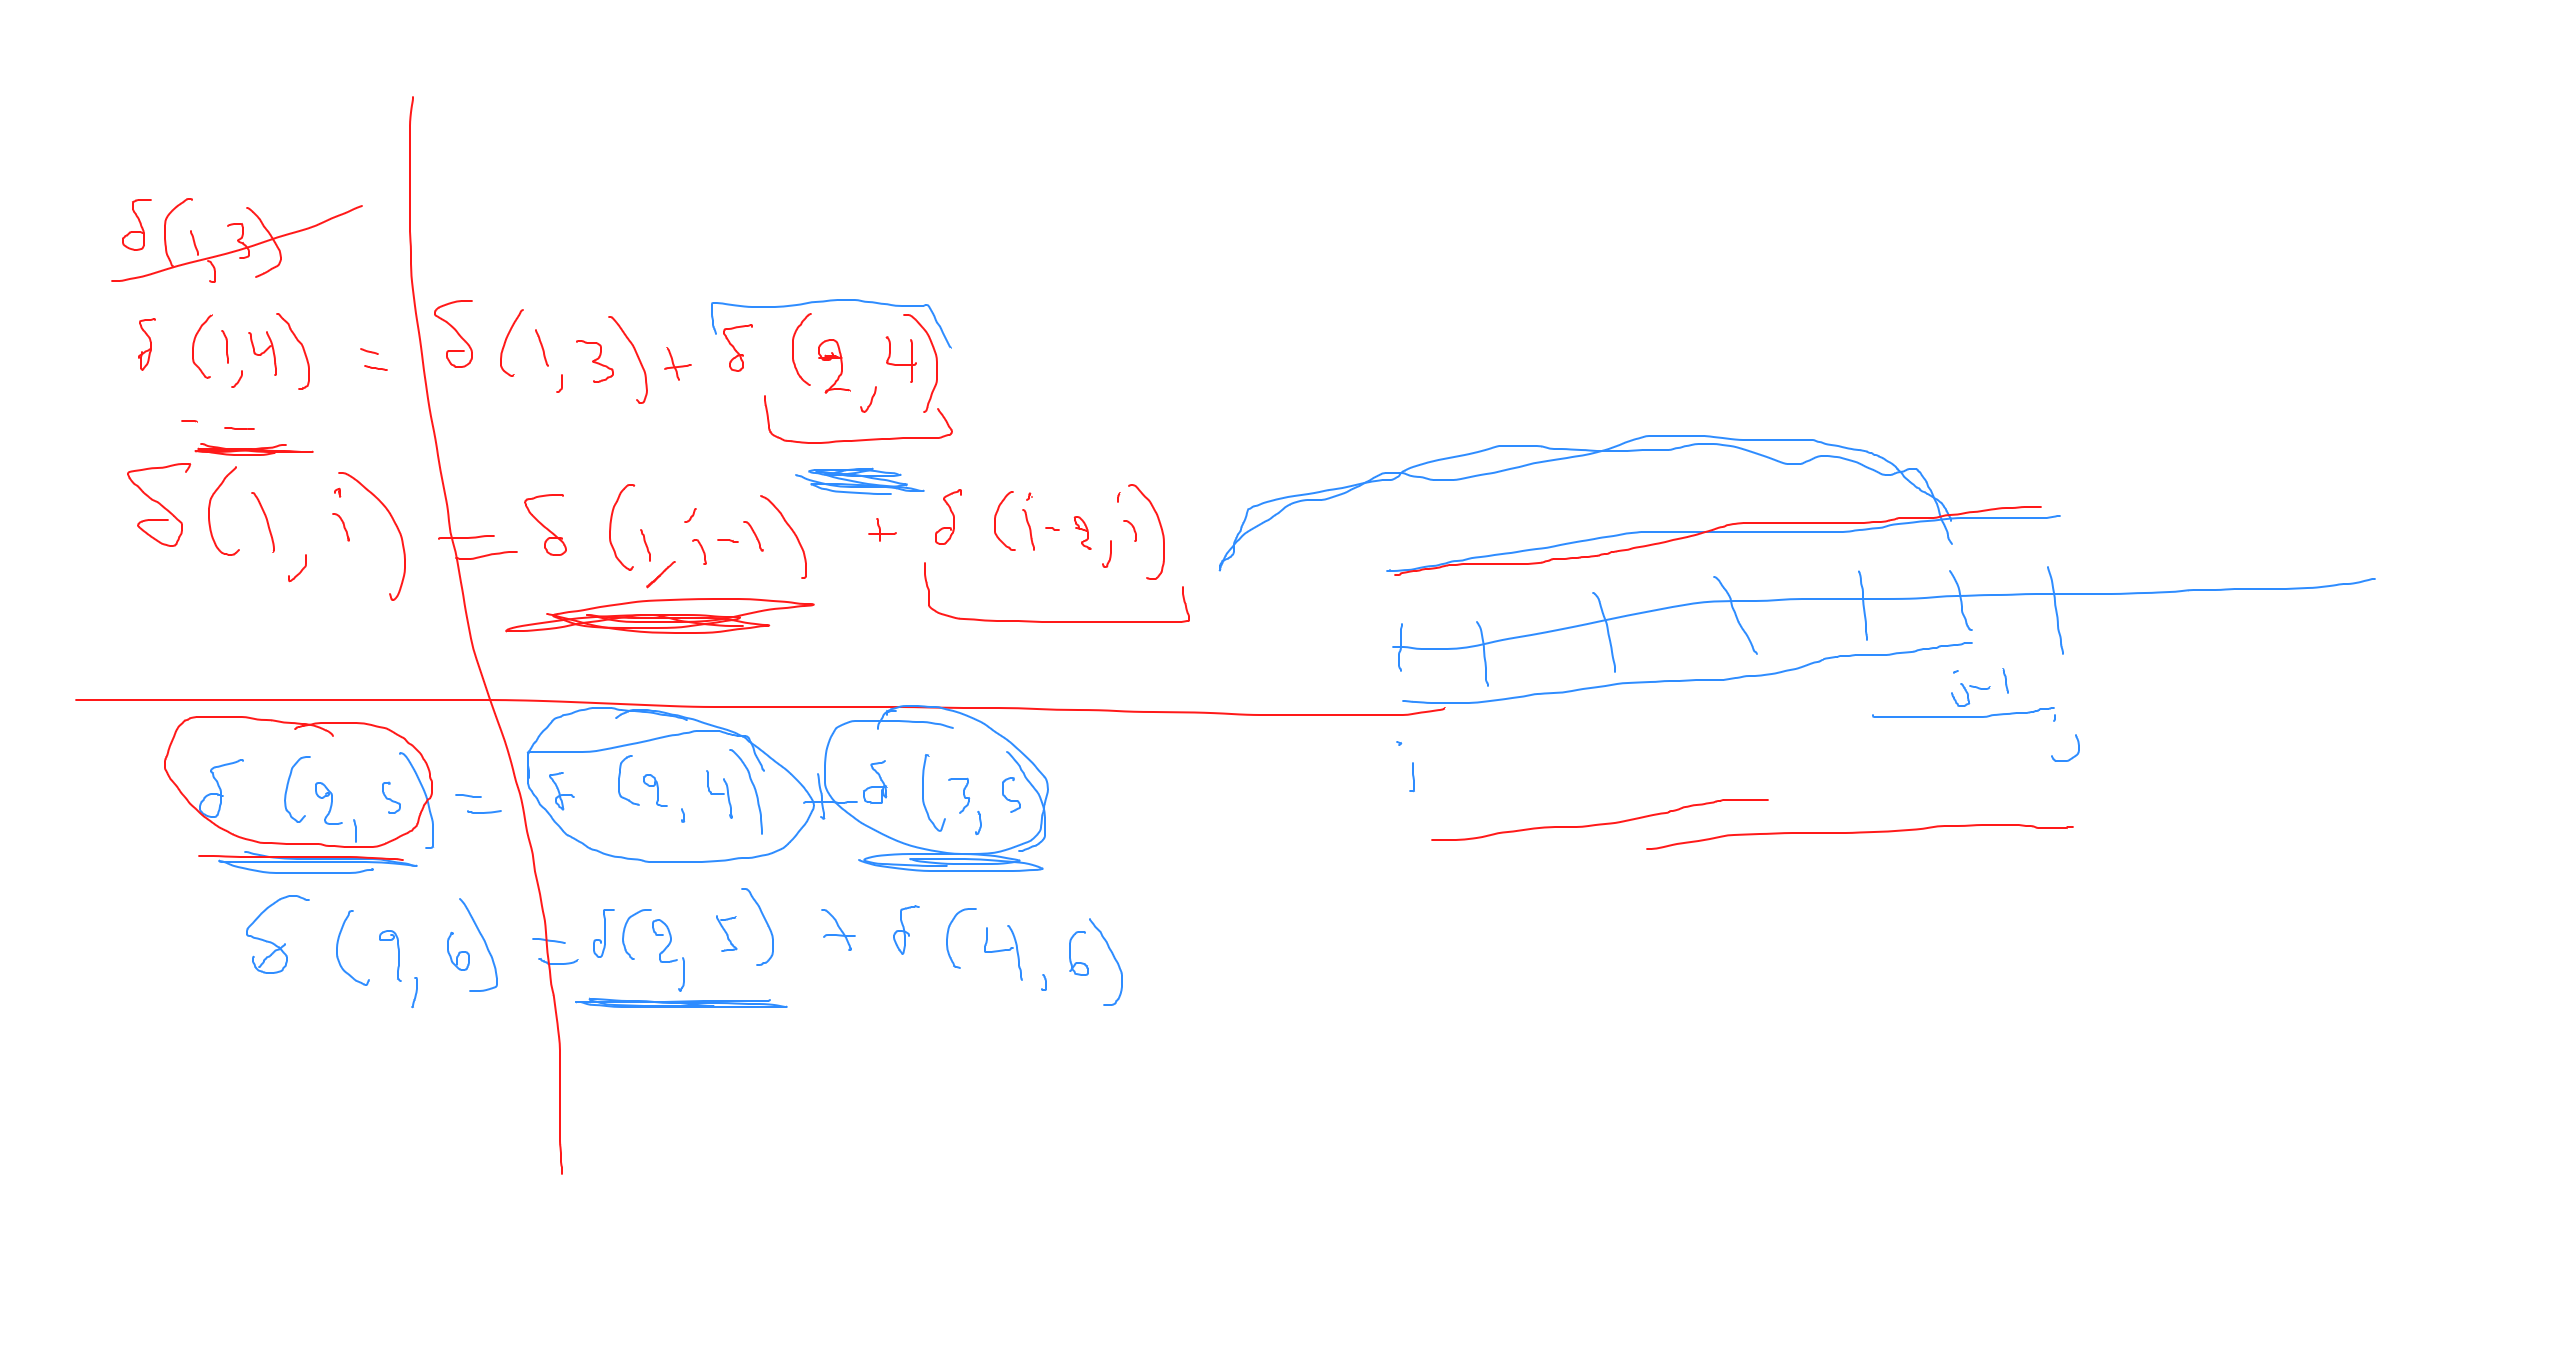 δ(1,3)
δ(1,4) = δ(1,3) + δ(2,4)
δ(1,i) = δ(1,i-1) + δ(i-2,i)
j-1
i
j
δ(2,5) = δ(2,4) + δ(3,5
δ(2,6) = δ(2,5) + δ(4,6)